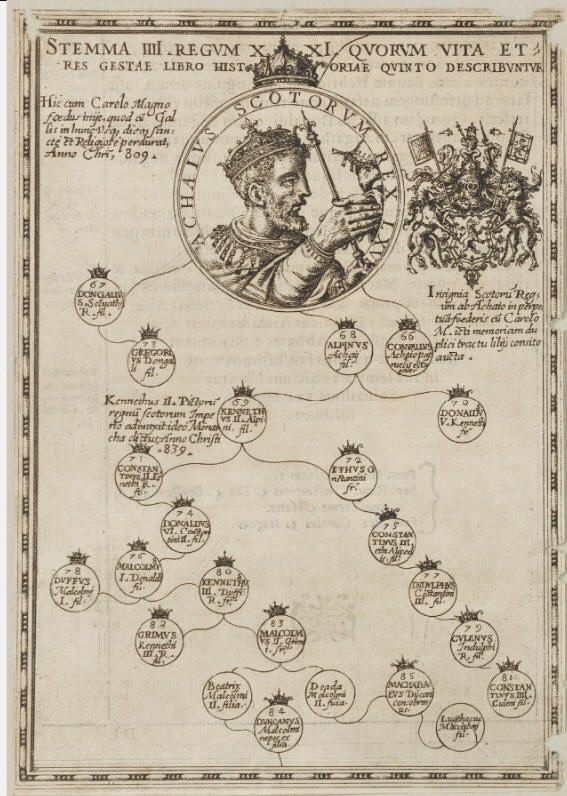 STEMMA IIII. REGVM X XI. QVORVM VITA ET
RES GESTAE LIBRO HISTORIAE QVINTO DESCRIBVNTVR
Hic cum Carolo Magno
fœdus inijt, quod cū Gal
lis in hunc Vsq diem san
cte et Religiose perdurat,
Anno Chri, 809.
ACHAIVS SCOTORVM REX LXV
Insignia Scotorū Reg
um ab Achaio in perpe
tuā foederis cū Carolo
M. icti memoriam du
plici tractu lilijs consito
aucta.
67
DONGALVS
S. Soluathij
R. fil.
73
GREGORI
VS Dongal
li
fil.
68
ALPINVS
Achaij
fil.
66
CONVALLVS
Achaio pat
ruelis
Kennethus II. Pictorū
regnū scotorum Impe
rio adiunxit ideo Monar
cha dictus Anno Christi
839.
69
KENNETH
VS II. Alpi
ni.
fil.
70
DONALDV
V. Kennethi
fr.
71
CONSTAN
TINVS II. Ken
nethi R.
fil.
72
ETHVS Co
nstantini
fr.
74
DONALDVS
VI. Constan
tini II. fil.
75
CONSTAN
TINVS III,
ethi Aliped
is, fil.
76
MALCOLMV
I. Donaldi
fil.
78
DVFFVS
Malcolmj
I. fil.
80
KENNETHV
III. Duffi
R. fr.
77
INDVLPHVS
Cōstantini
III. fil.
82
GRIMVS
Kennethi
III. R.
fil.
83
MALCOLM
VS II. Grimi
79
CVLENVS
Indulphi
R. fil.
81
CONSTAN
TINVS IIII.
Culeni fil.
Beatrix
Malcolmi
II. filia.
Doada
Malcolmi
II. filia
85
MACHABA
EVS Dūcani
consobrin
us.
84
DVNCANVS
Malcolmi
nepos ex
filia
Luthacus
Maccabaei
fil.